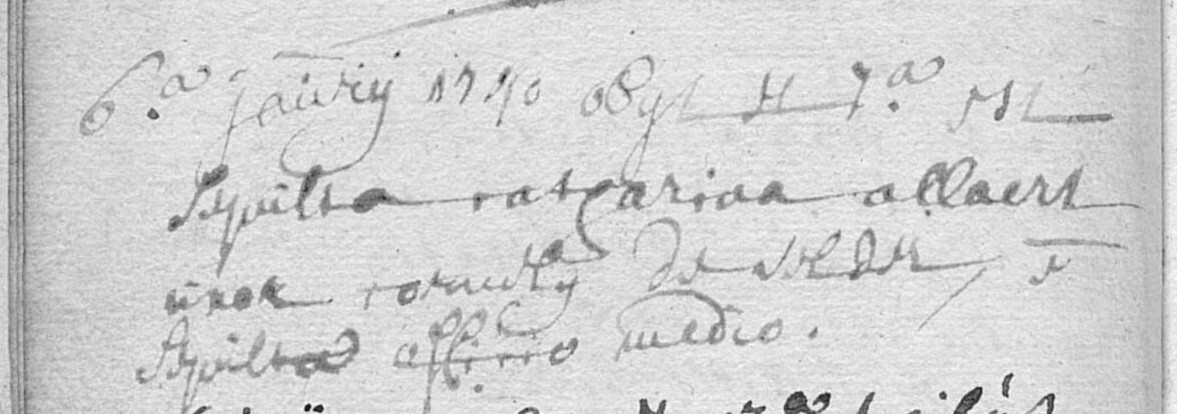 6.a janurij 1740 obyt et 7.a est
sepulta catharina allaert
uxor cornely de volder,
sepulta officio medio.